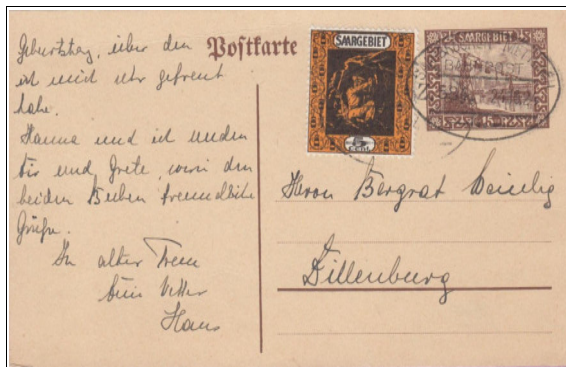 Geburtstag, über den
ich mich sehr gefreut
habe.
Hanna und ich senden
Dir und Grete, sowie den
beiden Buben freundliche
Grüße.
In alter Treue
Dein Vetter
Hans
Postkarte
SAARGEBIET
5
CENT.
SAARGEBIET
15
Herrn Bergrat
Dillenburg